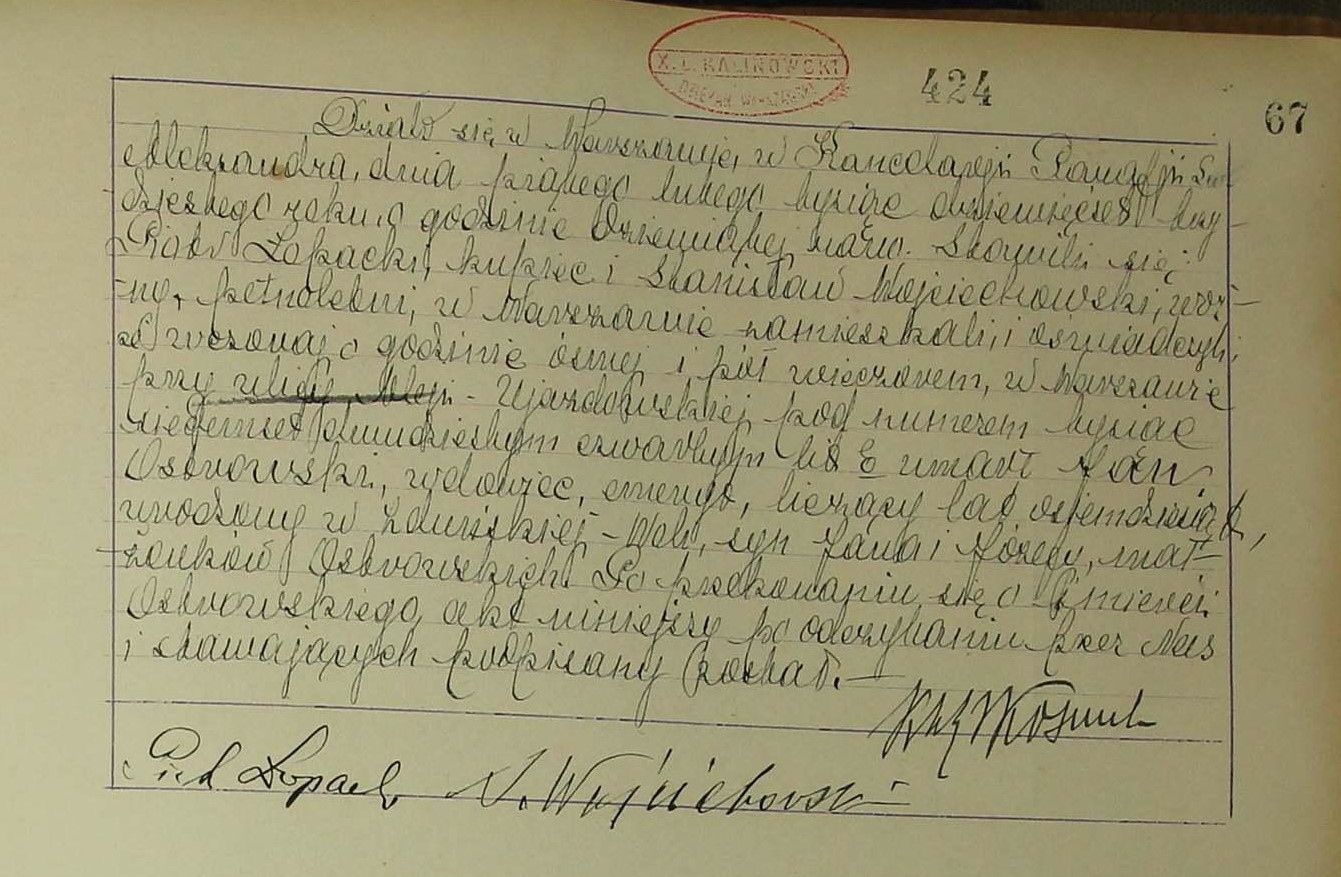 X. L. KALINOWSKI
DZIEKAN WARSZAWSKI
424
67
Działo się w Warszawie, w Kancelaryji Parafji Św.
Aleksandra, dnia piątego lutego tysiąc dziewięćset trzy-
dziestego roku, o godzinie dziewiątej rano. Stawili się:
Piotr Łopacki, kupiec i Stanisław Wojciechowski, woź-
ny, pełnoletni, w Warszawie zamieszkali, i oświadczyli,
że wczoraj o godzinie ósmej i pół wieczorem, w Warszawie
przy Aleji-Ujazdowskiej pod numerem tysiąc
siedemset dwudziestym czwartym lit E umarł Jan
Ostrowski, wdowiec, emeryt, liczący lat osiemdziesiąt,
urodzony w Zduńskiej-Woli, syn Jana i Józefy, mał-
żonków Ostrowskich. Po przekonaniu się o śmierci
Ostrowskiego, akt niniejszy po odczytaniu przez Nas
i stawających podpisany został.—
Piotr Łopacki S. Wojciechowski